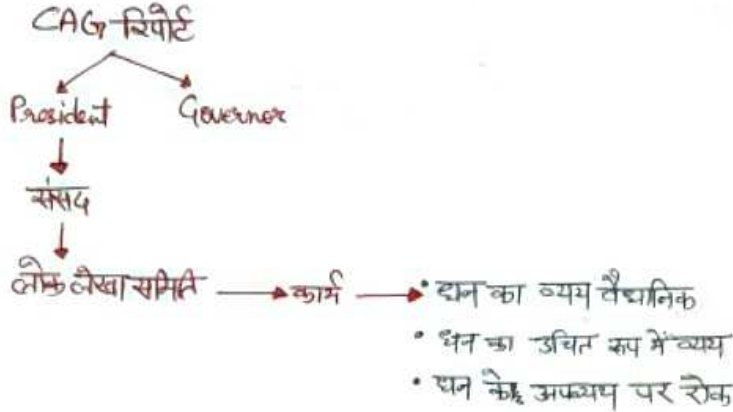 CAG रिपोर्ट
President Governor
संसद
लोक लेखा समिति कार्य • धन का व्यय वैधानिक
• धन का उचित रूप में व्यय
• धन के अपव्यय पर रोक